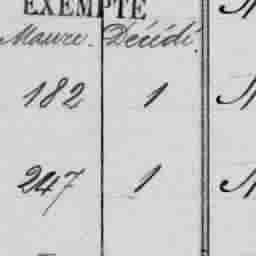 EXEMPTÉ
Mauvc. Décédé.
182 1 N
247 1 N